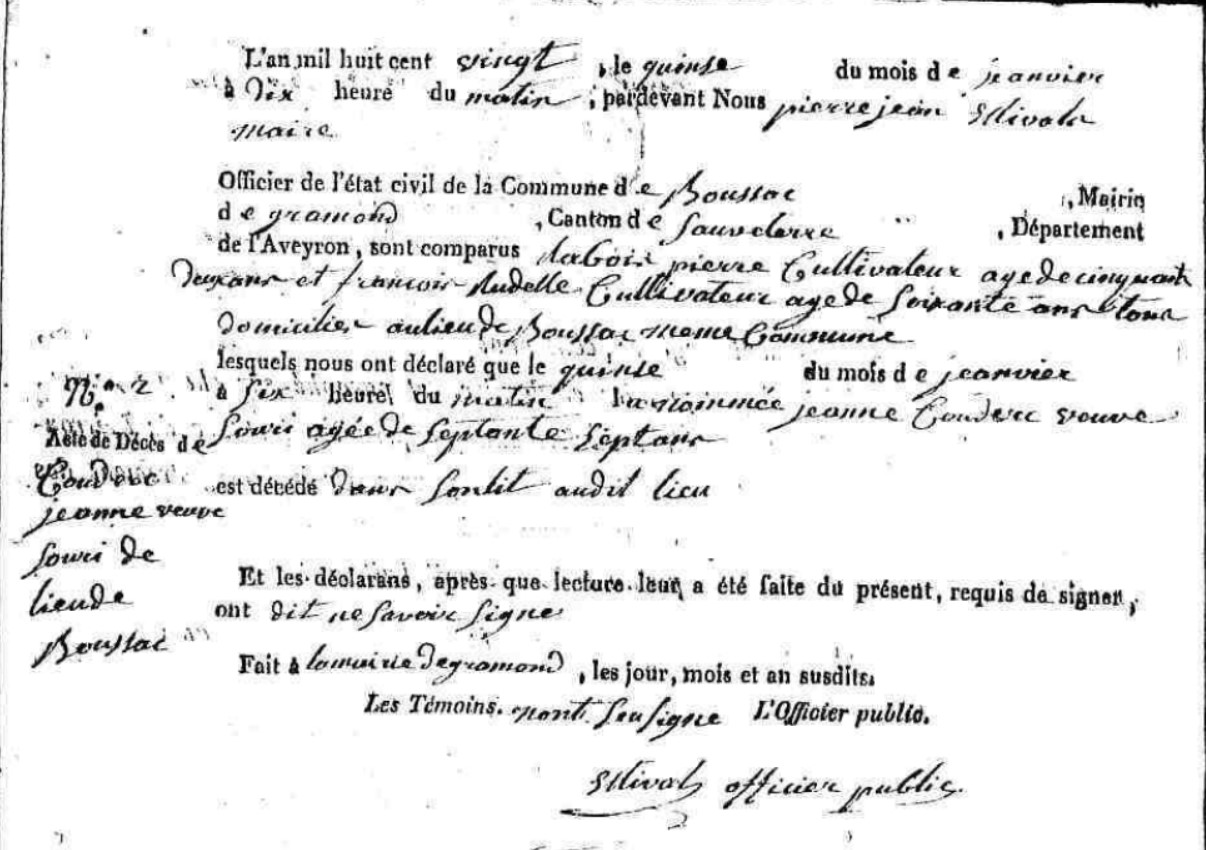 L'an mil huit cent vingt, le quinse du mois de jeanvier
à Dix heure du matin, pardevant Nous pierre jean Estivals
maire
Officier de l'état civil de la Commune de Boussac, Mairie
de gramond, Canton de Sauveterre, Département
de l'Aveyron, sont comparus pierre Cultivateur age de cinquante
deux ans et francois Rudelle Cultivateur age de Soixante ans tous
domicilies au lieu de Boussac meme Commune
lesquels nous ont déclaré que le quinse du mois de jeanvier
à Six heure du matin la nommée jeanne Couderc veuve
Souri agée de Septante Sept ans
est décédé dans Son lit audit lieu
Et les déclarans, après que lecture leur a été faite du présent, requis de signer,
ont dit ne Savoir Signe
Fait à la mairie de gramond, les jour, mois et an susdits.
Les Témoins. nont Seu Signe L'Officier public.
Estivals officier public.
N.º 2
Acte de Décès de
Couderc
jeanne veuve
Souri de
lieu de
Boussac